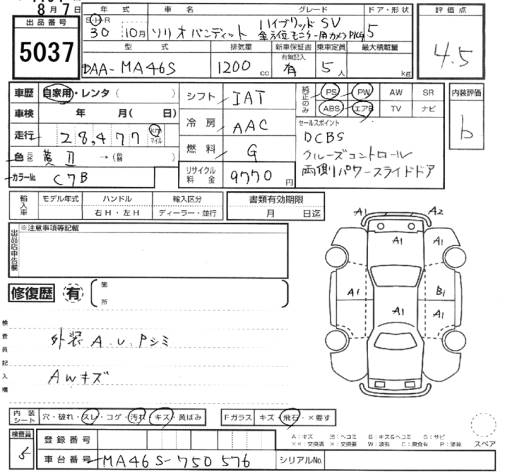 8月7日
出品番号
5037
年式 車名 グレード ドア・形状 評価点
S・H・R
30 10月 ソリオバンディット ハイブリッド SV 5 4.5
全方位モニター用カメラPKG
型式 排気量 新車保証書 乗車定員 最大積載量
有無記入
DAA-MA46S 1200 cc 有 5人 kg
車歴 自家用・レンタ( )
車検 年 月( 日)
走行 28,477 km マイル
色 黄II →( )
カラーNo. C7B
シフト IAT
冷房 AAC
燃料 G
リサイクル料金 9770円
純正のみ PS PW AW SR
ABS エアB TV ナビ
内装評価
b
セールスポイント
DCBS
クルーズコントロール
両側パワースライドドア
輸入車 モデル年式 ハンドル 輸入区分
年 右H・左H ディーラー・並行
書類有効期限
月 日迄
出品店申告欄
※注意事項等記載
修復歴 有 箇所
検査員記入欄
外装A.U.Pシミ
AWキズ
A1 A2
A1 A1
A1 B1
A1 A1
内装シート 穴・破れ・スレ・コゲ・汚れ・キズ・黄ばみ
Fガラス キズ・飛石・×要す
A:キズ U:ヘコミ B:キズ&ヘコミ S:サビ
××:交換済 ×:要交換 W:波有 C:腐食有 P:塗装
スペア
検査員
登録番号
車台番号 MA46S-750576
シリアルNo.